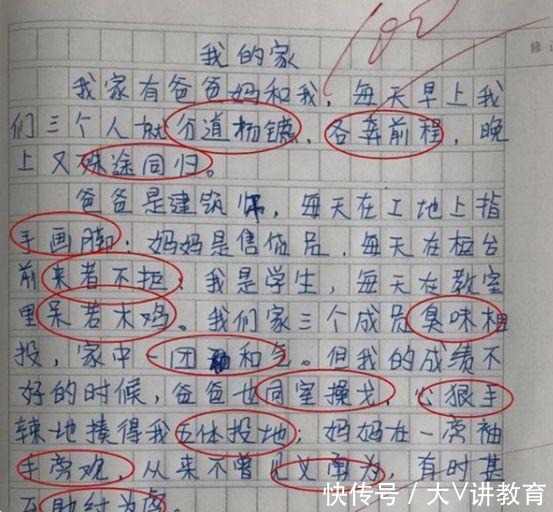 100
修正
我的家
我家有爸爸妈和我,每天早上我
们三个人就分道杨镳,各奔前程,晚
上又殊途同归。
爸爸是建筑师,每天在工地上指
手画脚;妈妈是售货员,每天在柜台
前来者不拒,我是学生,每天在教室
里呆若木鸡。我们家三个成员臭味相
投,家中一团和气。但我的成绩不
好的时候,爸爸也同室操戈,心狠手
辣地揍得我五体投地;妈妈在一旁袖
手旁观,从来不曾见义勇为,有时甚
至助纣为虐。
快传号/大V讲教育